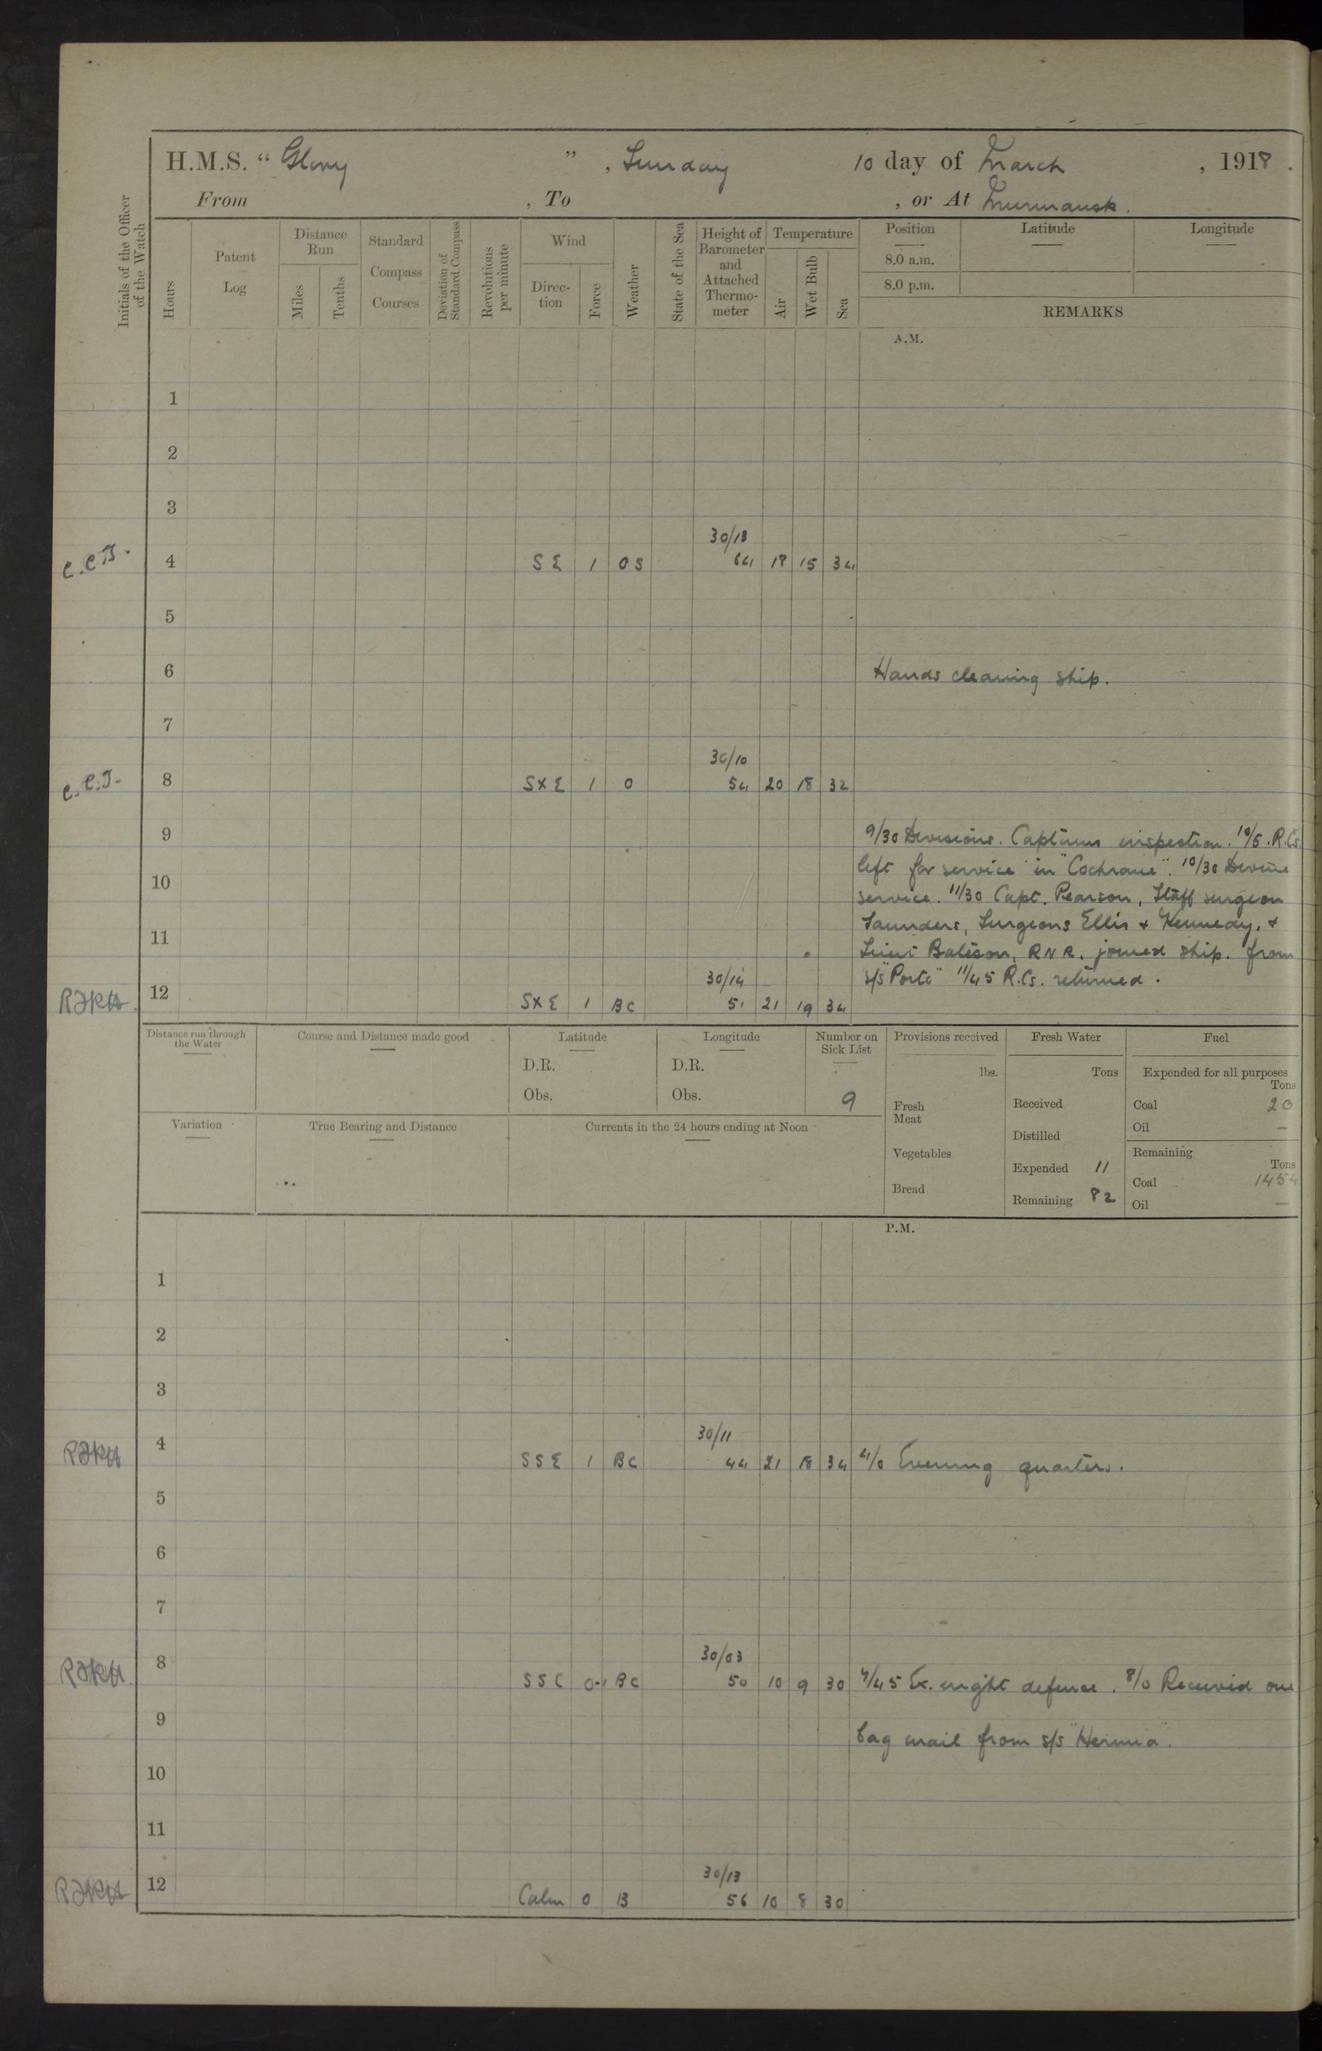 H.M.S. “ Glory ” , Sunday 10 day of March , 1918 .
From , To , or At Murmansk.
Initials of the Officer of the Watch
Hours
Patent Log
Distance Run
Miles
Tenths
Standard Compass Courses
Deviation of Standard Compass
Revolutions per minute
Wind
Direction
Force
Weather
State of the Sea
Height of Barometer and Attached Thermometer
Temperature
Air
Wet Bulb
Sea
Position Latitude Longitude
8.0 a.m.
8.0 p.m.
REMARKS
A.M.
1
2
3
30/18
C.C.B. 4 SE 1 OS 64 18 15 34
5
6 Hands cleaning ship.
7
30/10
8 SXE 1 O 54 20 18 32
9 9/30 Divisions. Captains inspection. 10/5. R.Cs.
left for service in "Cochrane". 10/30 Divine
10 service. 11/30 Capt. Pearson, Staff surgeon
Saunders, Surgeons Ellis & Kennedy, &
11 Lieut Bateson, RNR. joined ship. from
30/14 s/s "Porto" 11/45 R.Cs. returned.
12 SXE 1 BC 51 21 19 34
Distance run through the Water
Course and Distance made good
Latitude
D.R.
Obs.
Longitude
D.R.
Obs.
Number on Sick List
9
Provisions received
lbs.
Fresh Meat
Vegetables
Bread
Fresh Water
Tons
Received
Distilled
Expended 11
Remaining 82
Fuel
Expended for all purposes
Tons
Coal 20
Oil —
Remaining
Tons
Coal 1454
Oil —
Variation
True Bearing and Distance
Currents in the 24 hours ending at Noon
P.M.
1
2
3
30/11
4 SSE 1 BC 44 21 18 34 4/0 Evening quarters.
5
6
7
30/03
8 SSE 0-1 BC 50 10 9 30 7/45 Ex. night defence. 8/0 Received one
9 bag mail from s/s "Hermia".
10
11
30/13
12 Calm 0 B 56 10 8 30